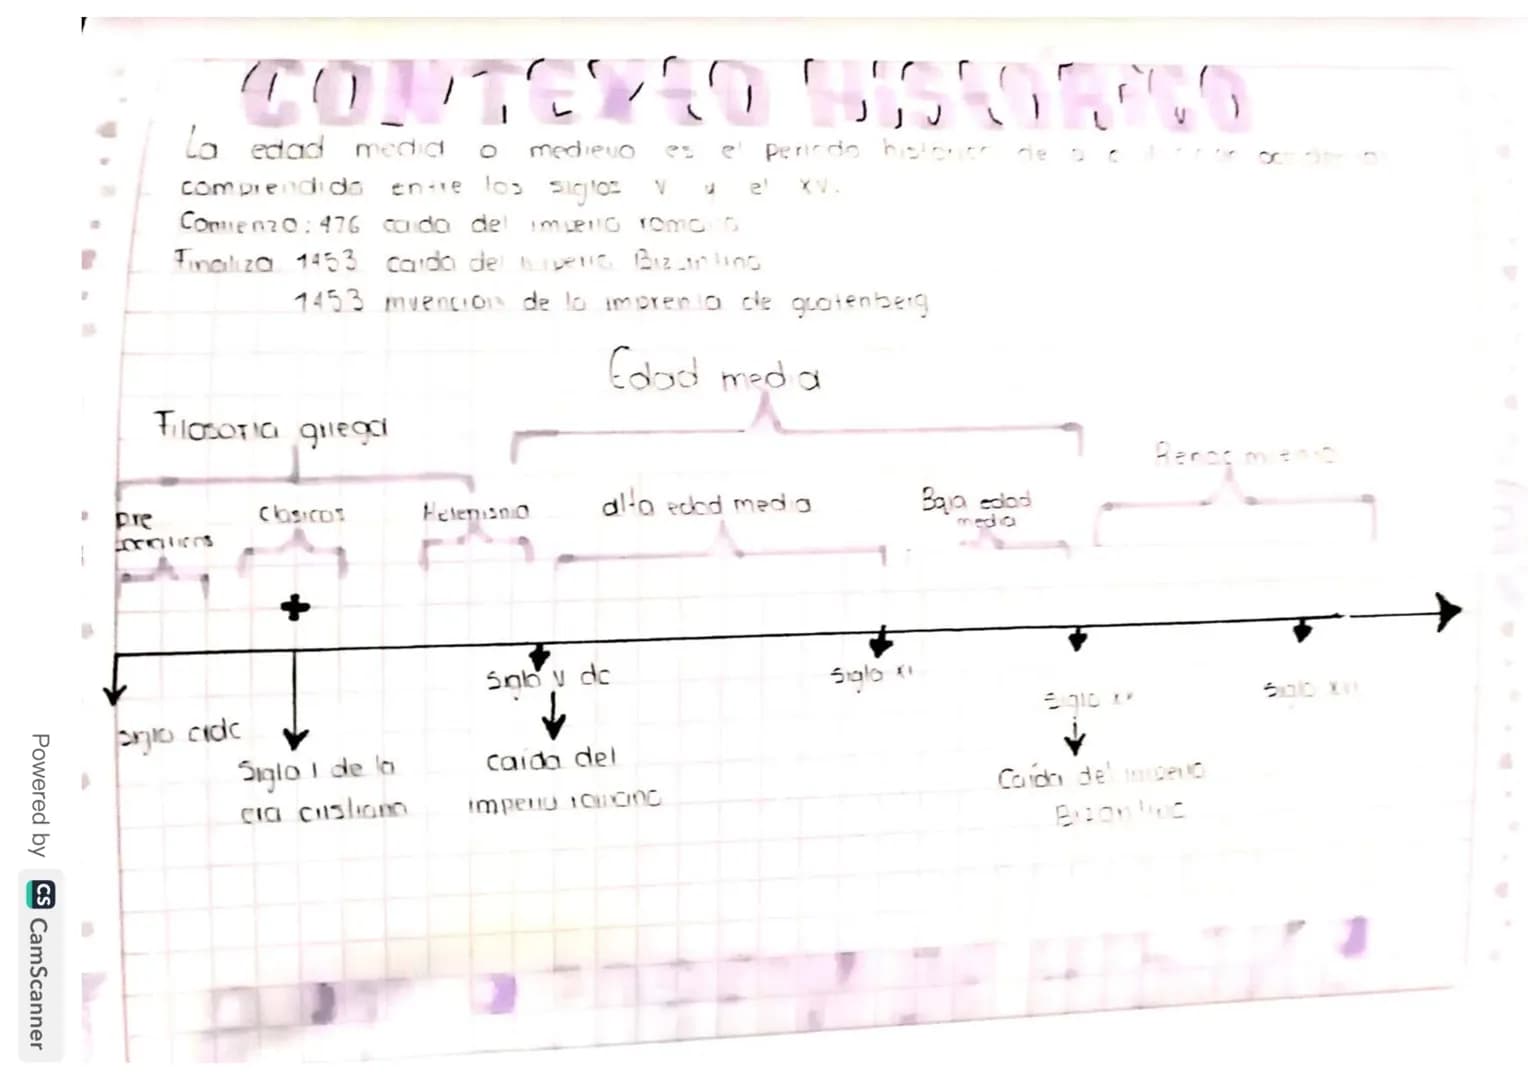 CONTEXTO HISTORICO
La edad media o medievo es el periodo historico de la
comprendido entre los siglos V y el XV.
Comienzo: 476 caida del imperio romano
Finaliza 1453 caida del imperio Bizantino
1453 invencion de la imprenta de guatenberg
Edad media
Filosofia griega
Renacimiento
pre
Clasicos
Helenismo
alta edad media
Baja edad
media
Siglo V dc
Siglo XI
Siglo XV
Siglo
Siglo I de la
era cristiana
caida del
imperio romano
Caida del imperio
Bizantino
Powered by CS CamScanner